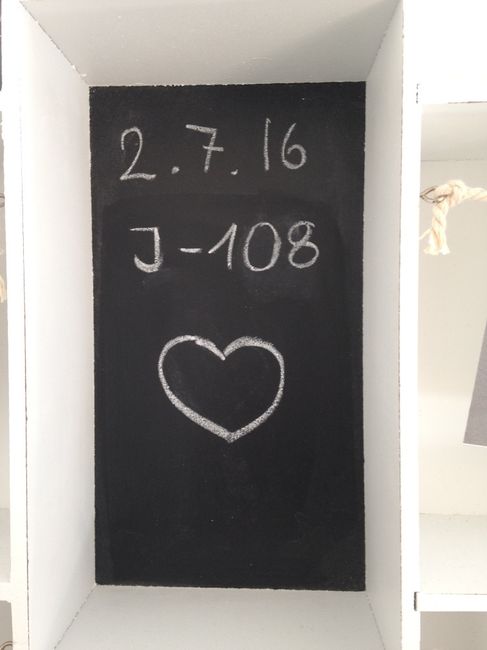 2.7.16
J-108